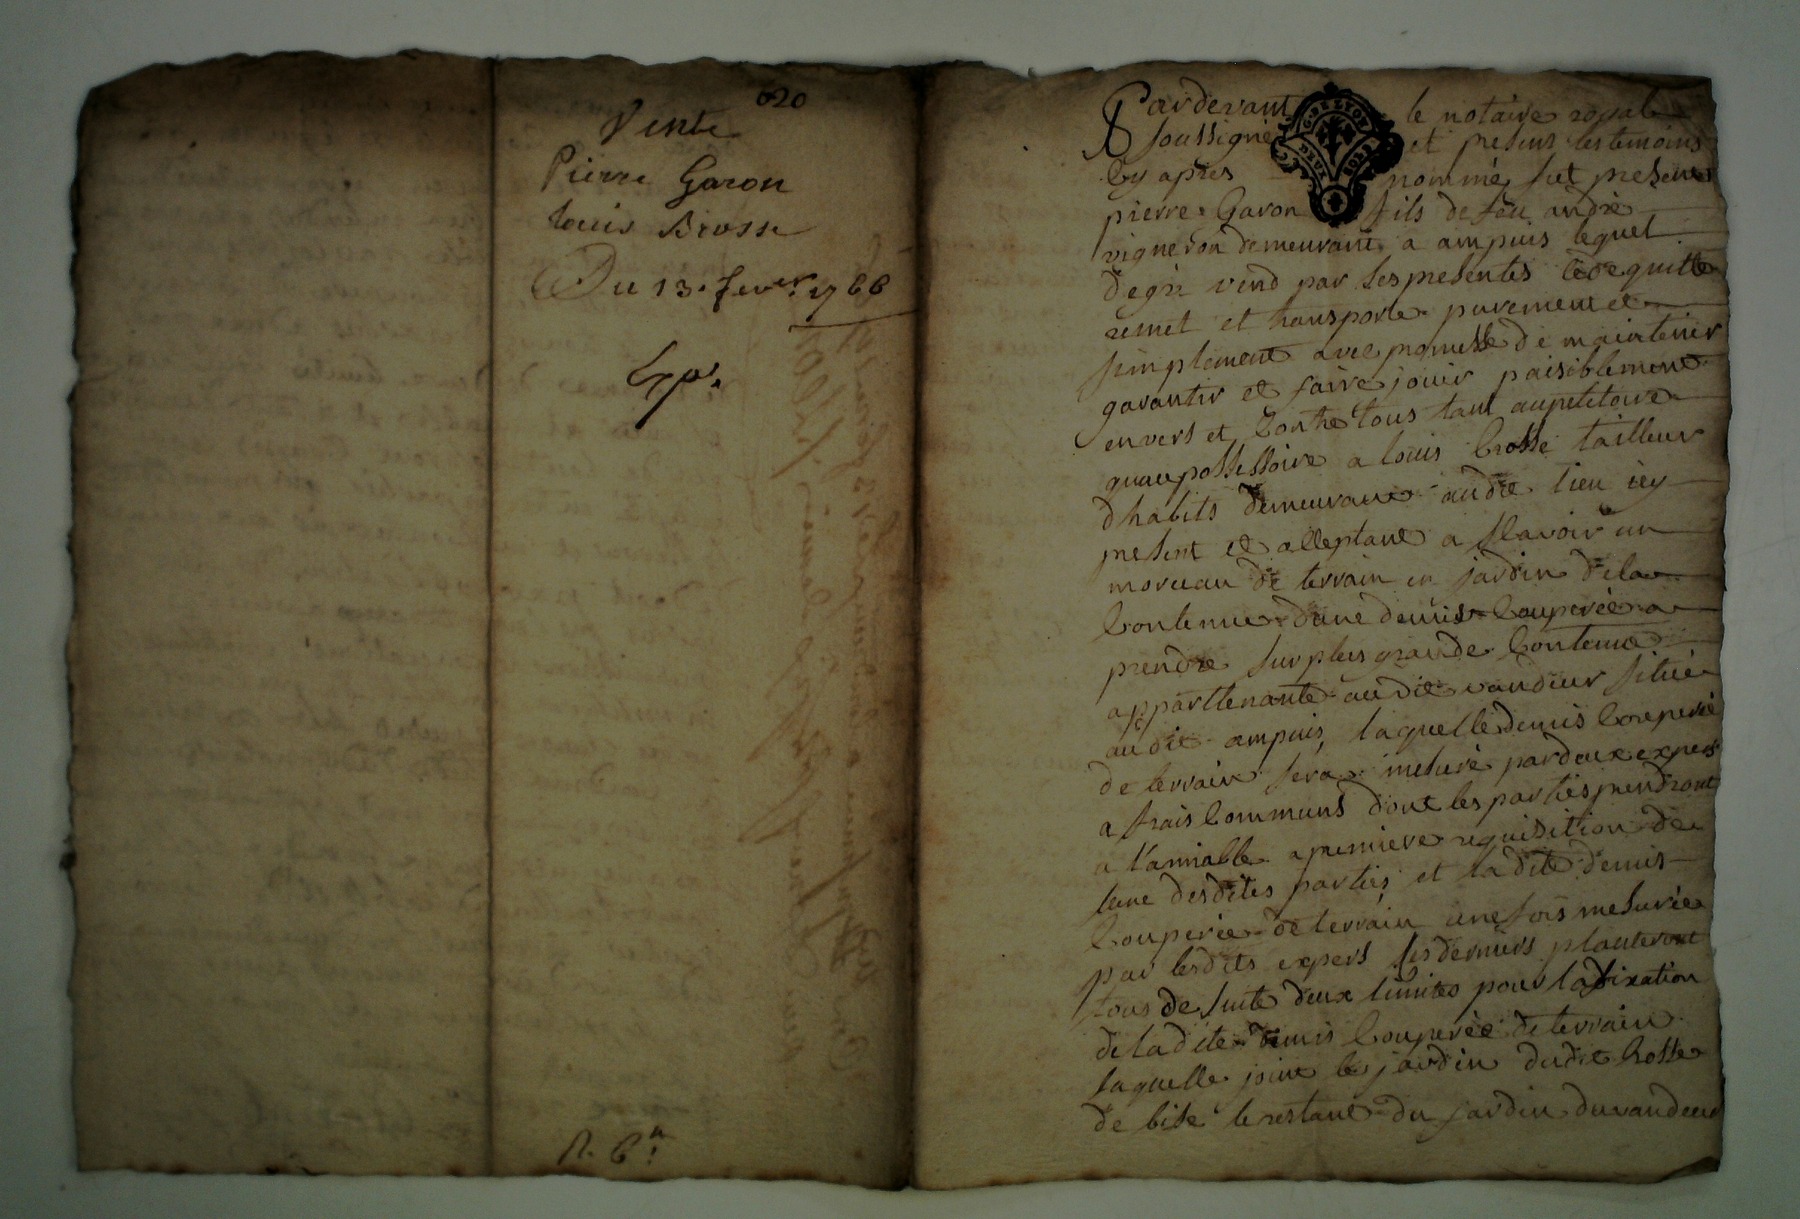 620
Vente
Pierre Garon
Louis Brosse
Du 13. fevr. 1766
Pardevant le notaire royal
soussigné et presens les temoins
cy apres nommé fut present
pierre Garon fils de feu andré
vigneron demeurant a ampuis lequel
degré vend par ses presentes cede quitte
remet et transporte purement et
simplement avec promesse de maintenir
garantir et faire jouir paisiblement
envers et contre tous tant au petitoire
quau possessoire a louis brosse tailleur
dhabits demeurant audit lieu icy
present et acceptant a scavoir un
morceau de terrain en jardin de la
contenue dune demis couperée a
prendre sur plus grande contenue
appartenante audit vandeur situé
audit ampuis, laquelle demis couperée
de terrain sera mesuré par deux expers
a frais communs dont les parties prendront
a l'amiable a premiere requisition de
lune desdites parties et ladite demis
couperée de terrain une fois mesurée
par lesdits expers ses derniers planteront
tous de suite deux limites pour la fixation
de ladite demis couperée de terrain
laquelle joint le jardin dudit brosse
de bise le restant du jardin du vandeur